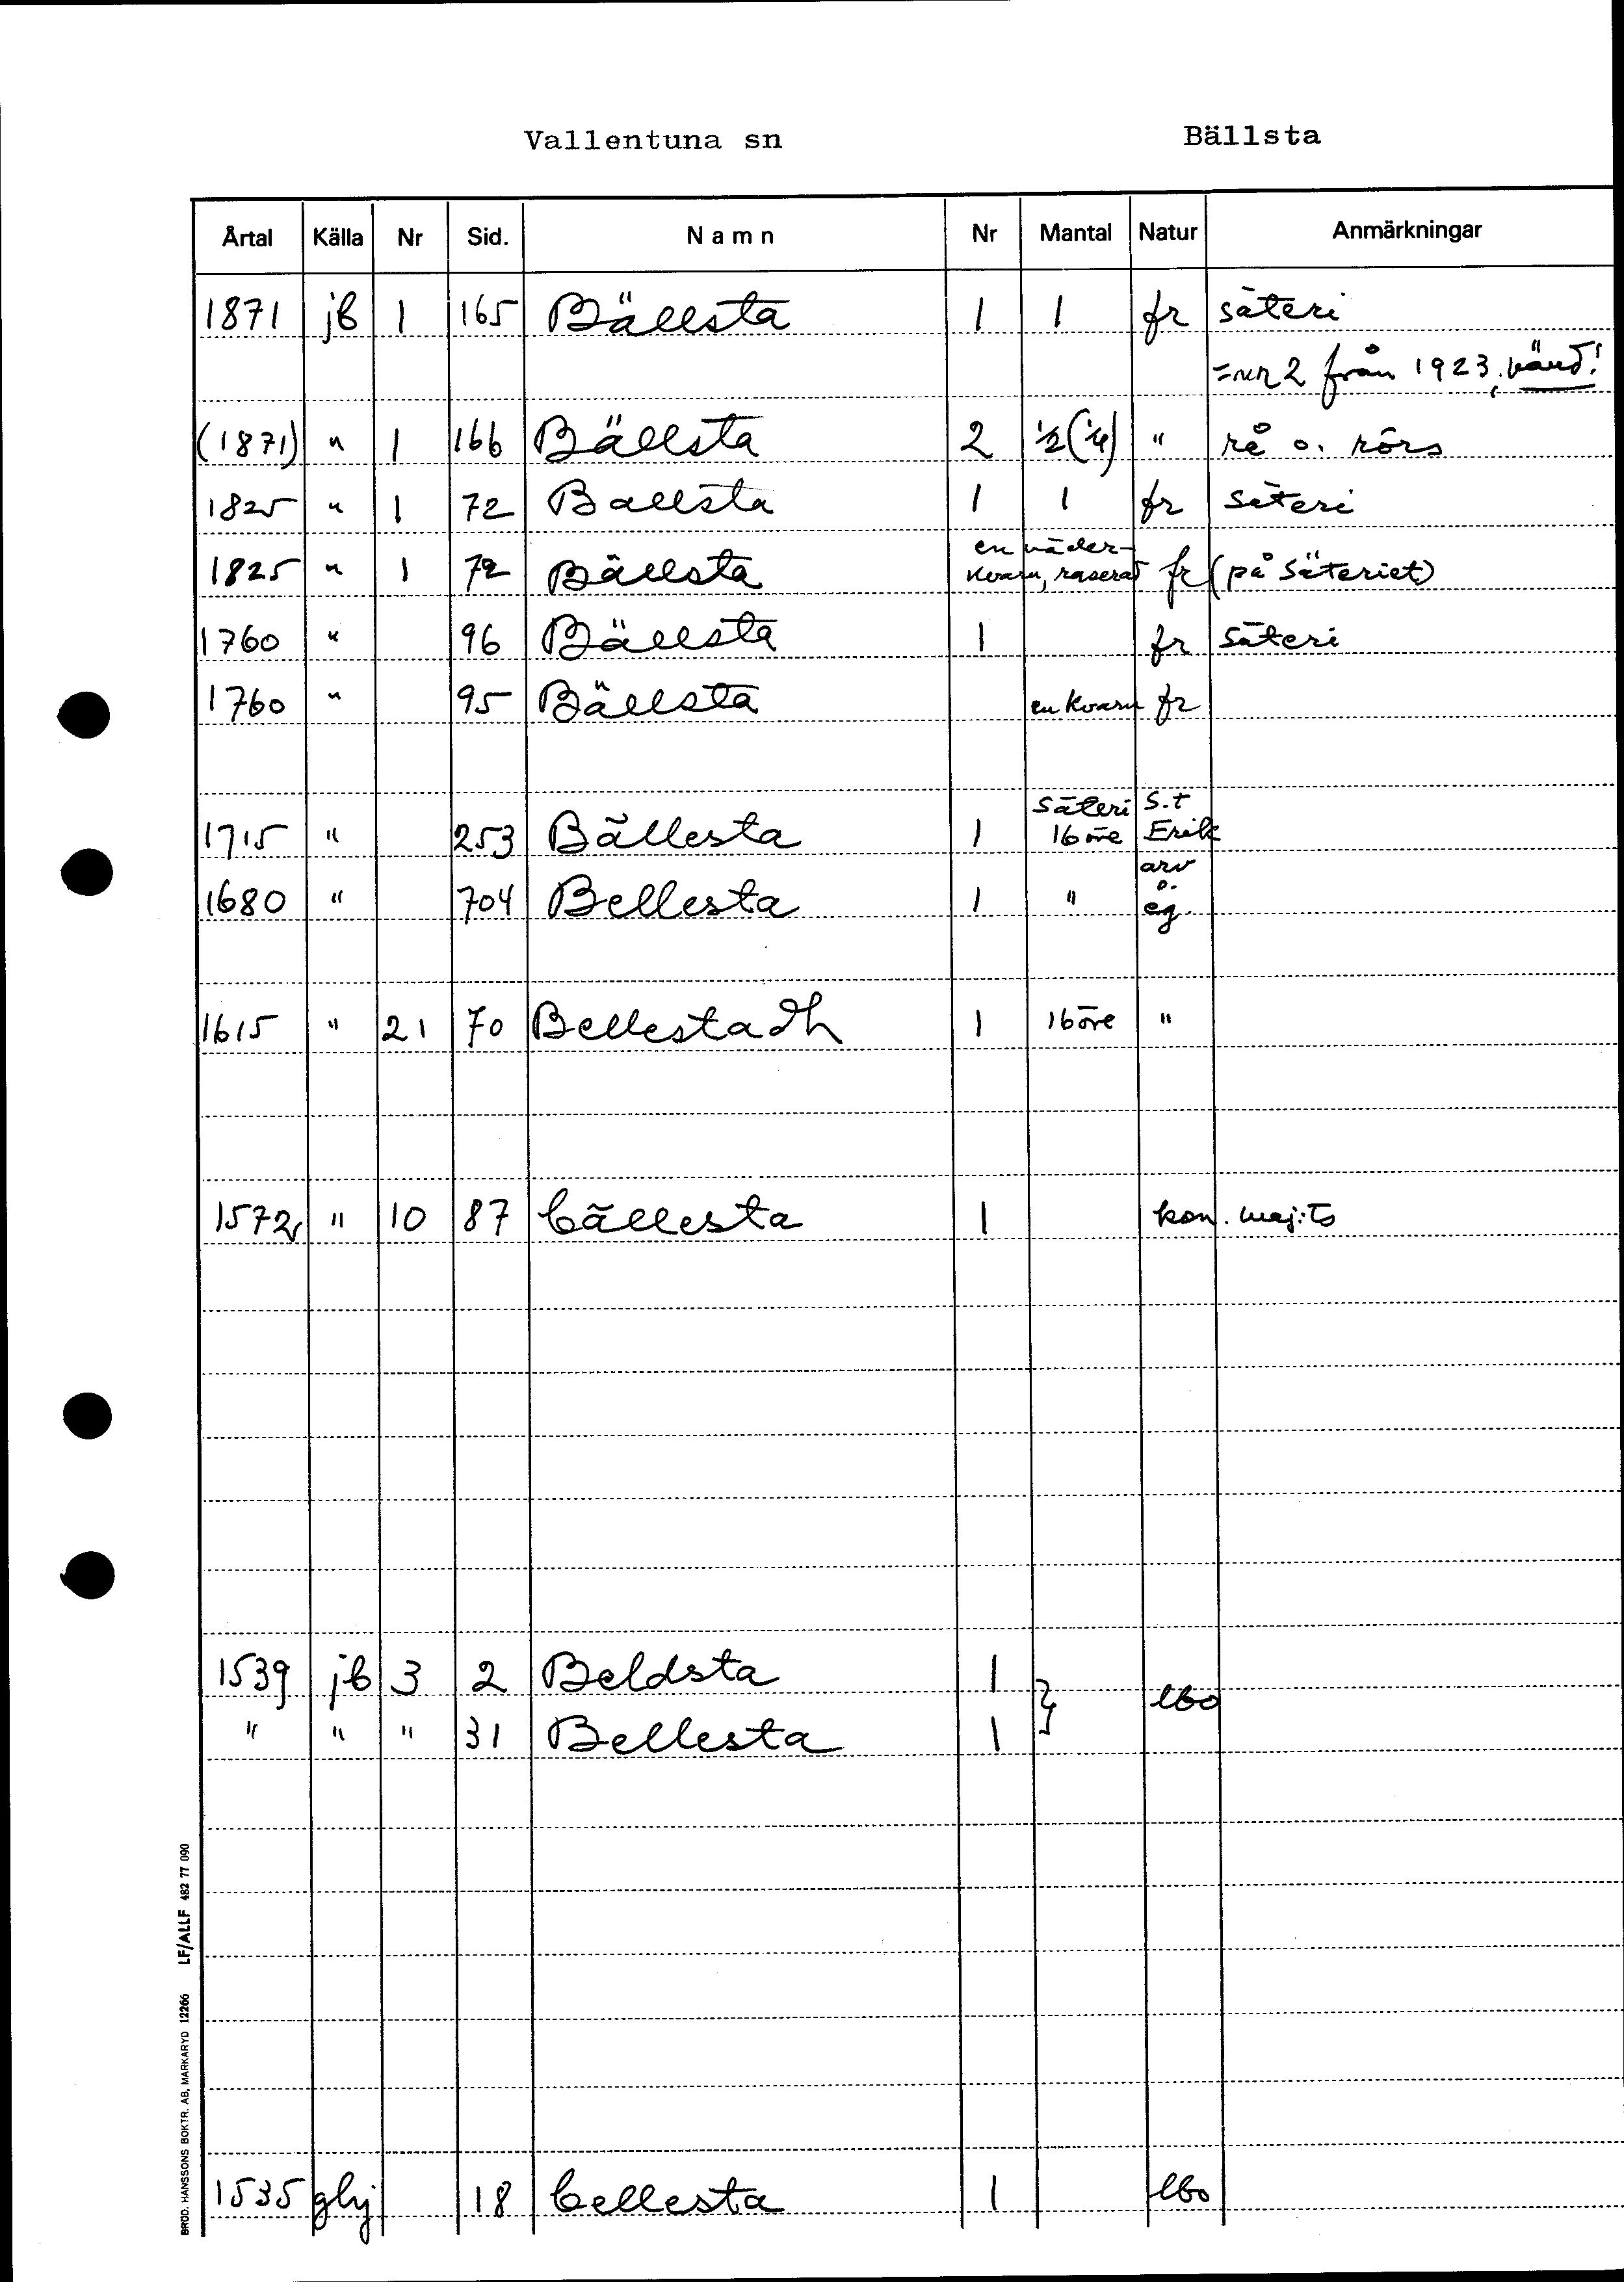 Vallentuna sn Bällsta
Årtal Källa Nr Sid. Namn Nr Mantal Natur Anmärkningar
1871 jb 1 165 Bällsta 1 1 fr säteri
=nr 2 från 1923, vänd!
(1871) " 1 166 Bällsta 2 1/2 (1/4) " rå o. rörs
1825 " 1 72 Ballsta 1 1 fr säteri
en väder-
1825 " 1 72 Bällsta kvarn, raserad fr (på säteriet)
1760 " 96 Bällsta 1 fr säteri
1760 " 95 Bällsta en kvarn fr
Säteri S.t
1715 " 253 Bällesta 1 16 öre Erik
arv
o.
1680 " 704 Bellesta 1 " eg.
1615 " 21 70 Bellestadh 1 16 öre "
1572 " 10 87 bällesta 1 kon. maj:ts
1539 jb 3 2 Beldsta 1
} lbo
" " " 31 Bellesta 1
1535 ghj 18 bellesta 1 lbo
BROD. HANSSONS BOKTR. AB, MARKARYD 12266 LF/ALLF 482 77 090